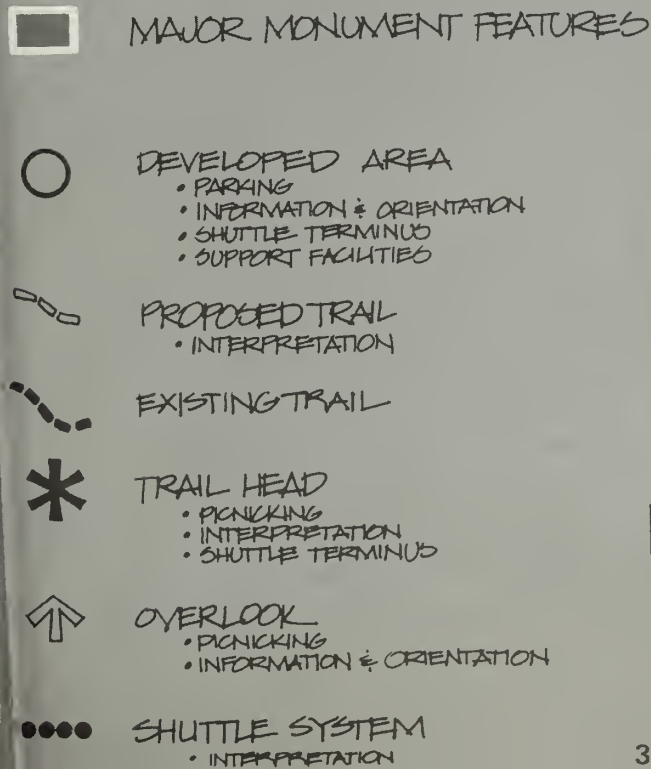 MAJOR MONUMENT FEATURES
DEVELOPED AREA
• PARKING
• INFORMATION & ORIENTATION
• SHUTTLE TERMINUS
• SUPPORT FACILITIES
PROPOSED TRAIL
• INTERPRETATION
EXISTING TRAIL
TRAIL HEAD
• PICNICKING
• INTERPRETATION
• SHUTTLE TERMINUS
OVERLOOK
• PICNICKING
• INFORMATION & ORIENTATION
SHUTTLE SYSTEM
• INTERPRETATION
3